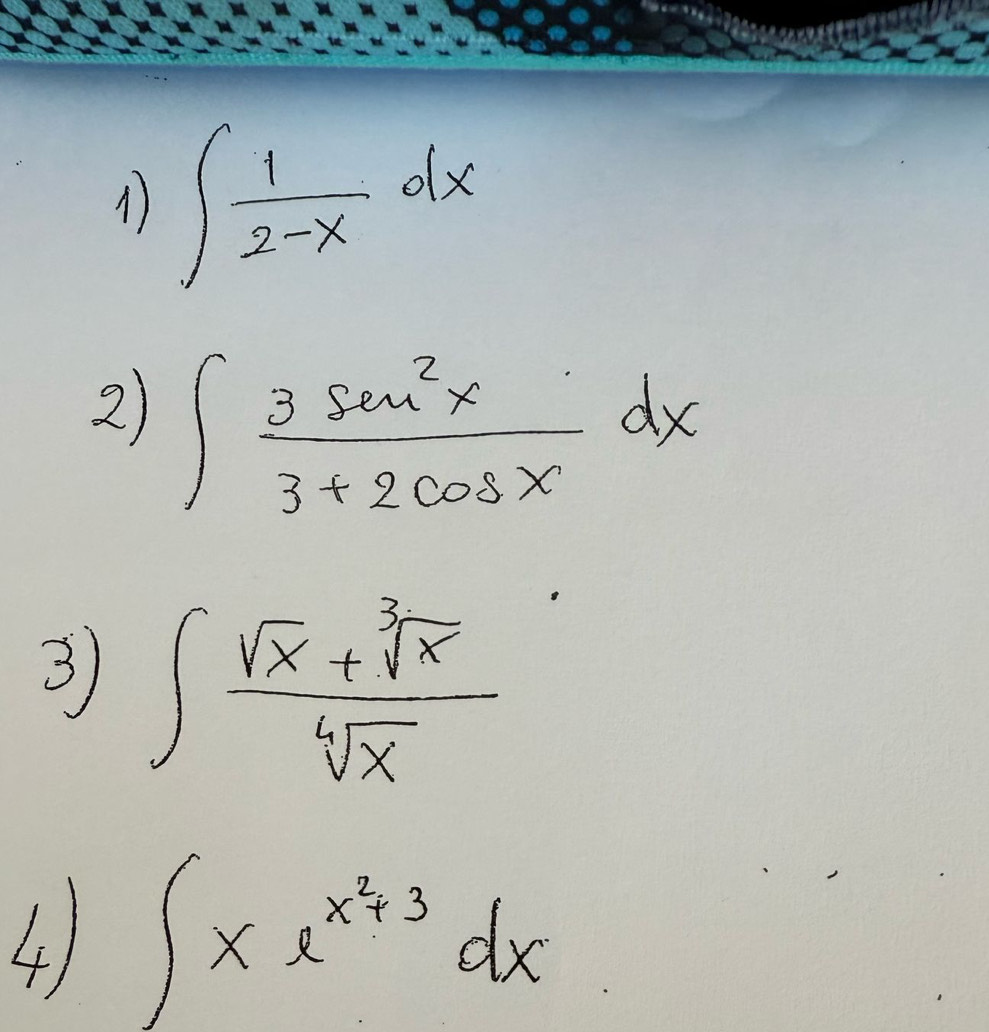 1) ∫ 1/(2-x) dx
2) ∫ (3 sen²x)/(3+2cosx) dx
3) ∫ (√x + ∛x)/∜x
4) ∫ x e^(x²+3) dx